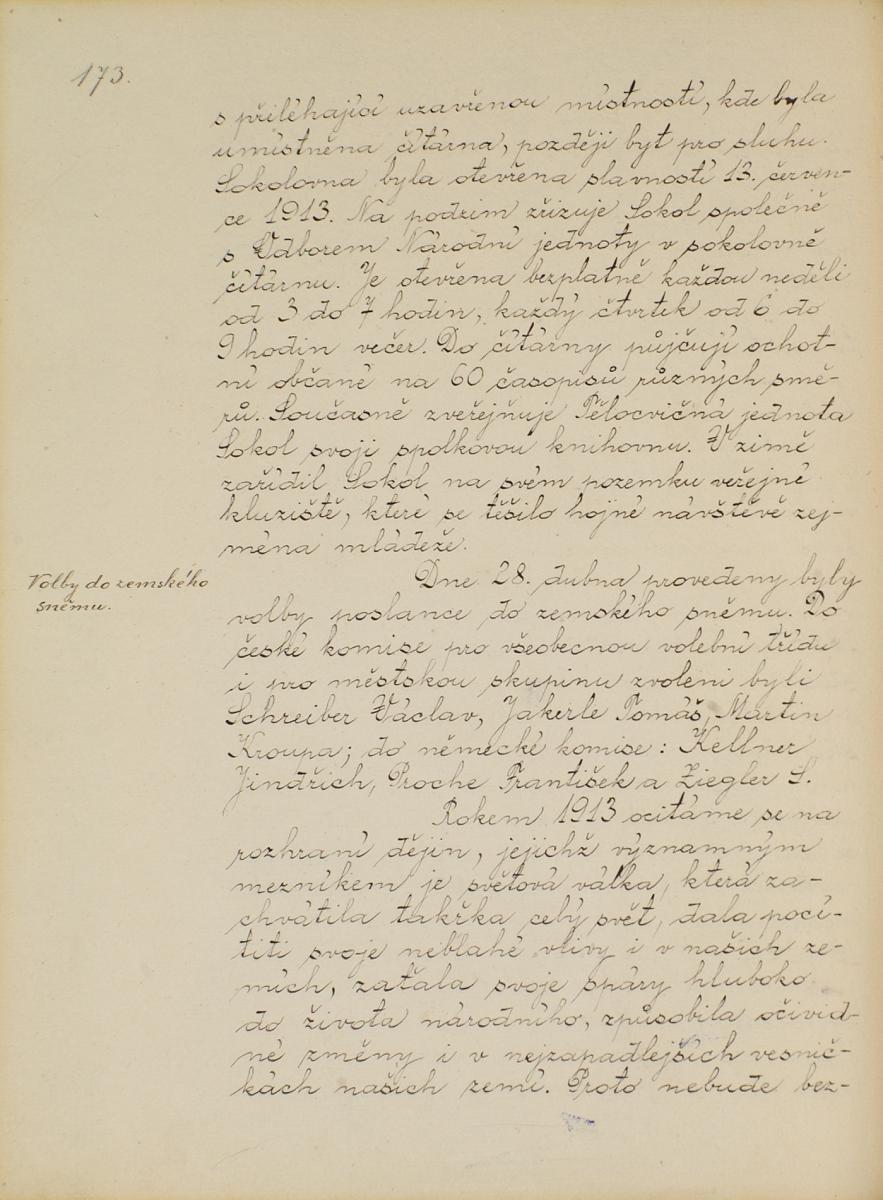 173.
s přiléhající uzavřenou místností, kde byla
umístněna čítárna, později byt pro sluhu.
Sokolovna byla otevřena slavností 13. červen-
ce 1913. Na podzim zřizuje Sokol společně
s Odborem Národní jednoty v sokolovně
čítárnu. Je otevřena bezplatně každou neděli
od 3 do 7 hodin, každý čtvrtek od 6 do
9 hodin večer. Do čítárny půjčují ochot-
ní občané na 60 časopisů různých smě-
rů. Současně zveřejňuje Tělocvičná jednota
Sokol svoji spolkovou knihovnu. V zimě
zařídil Sokol na svém pozemku veřejné
kluziště, které se těšilo hojné návštěvě zej-
ména mládeže.
Volby do zemského
sněmu.
Dne 28. dubna provedeny byly
volby poslance do zemského sněmu. Do
české komise pro všeobecnou volební třídu
i pro městskou skupinu zvoleni byli
Schreiber Václav, Jakerle Tomáš, Martin
Kroupa; do německé komise: Kellner
Jindřich, Proche František a Ziegler S.
Rokem 1913 ocitáme se na
rozhraní dějin, jejichž významným
mezníkem je světová válka, která za-
chvátila takřka celý svět, dala pocí-
titi svoje neblahé vlivy i v našich ze-
mích, zaťala svoje spáry hluboko
do života národního, způsobila očivid-
né změny i v nejzapadlejších vesnič-
kách našich zemí. Proto nebude bez-